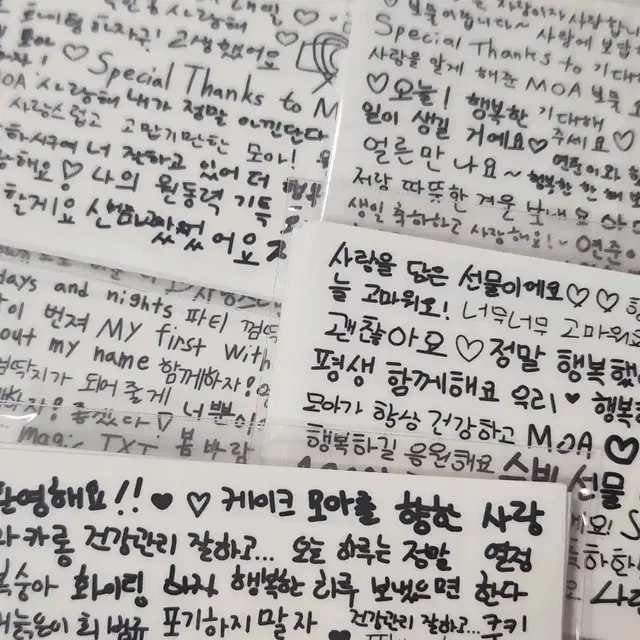 사랑해
하이팅 하자구! 고생했어요
♡ Special Thanks to M
MOA 사랑해 내가 정말 아낀단다
사랑스럽고 고맙기만한 모아!
너 잘하고 있어 더
해요♡ 나의 원동력 기특
할게요
어요
사랑합니
Special Thanks to 기대
사랑을 알게 해준 MOA 보물
♡오늘! 행복한 기대해
일이 생길 거예요♡ 주세요♡
얼른 만나요~ 행복한 한 해 보
저랑 따뜻한 겨울 보내요
생일 축하하고 사랑해요!~ 연준
days and nights 파티 껌딱
번져 My first with
out my name 함께하자!
껌딱지가 되어 줄게
좋겠다♡ 너 뿐이
Magic TXT 봄바람
사랑을 담은 선물이에요♡♡
늘 고마워요! 너무너무 고마워요
괜찮아요♡정말 행복했
평생 함께해요 우리♥행복
모아가 항상 건강하고 MOA♡
행복하길 응원해요 선물
환영해요!!♥♡케이크 모아를 향한 사랑
카롱 건강관리 잘하고... 오늘 하루는 정말 연정
복숭아 화이팅 하자 행복한 하루 보냈으면 한다
포기하지 말자 건강관리 잘하고... 쿠키